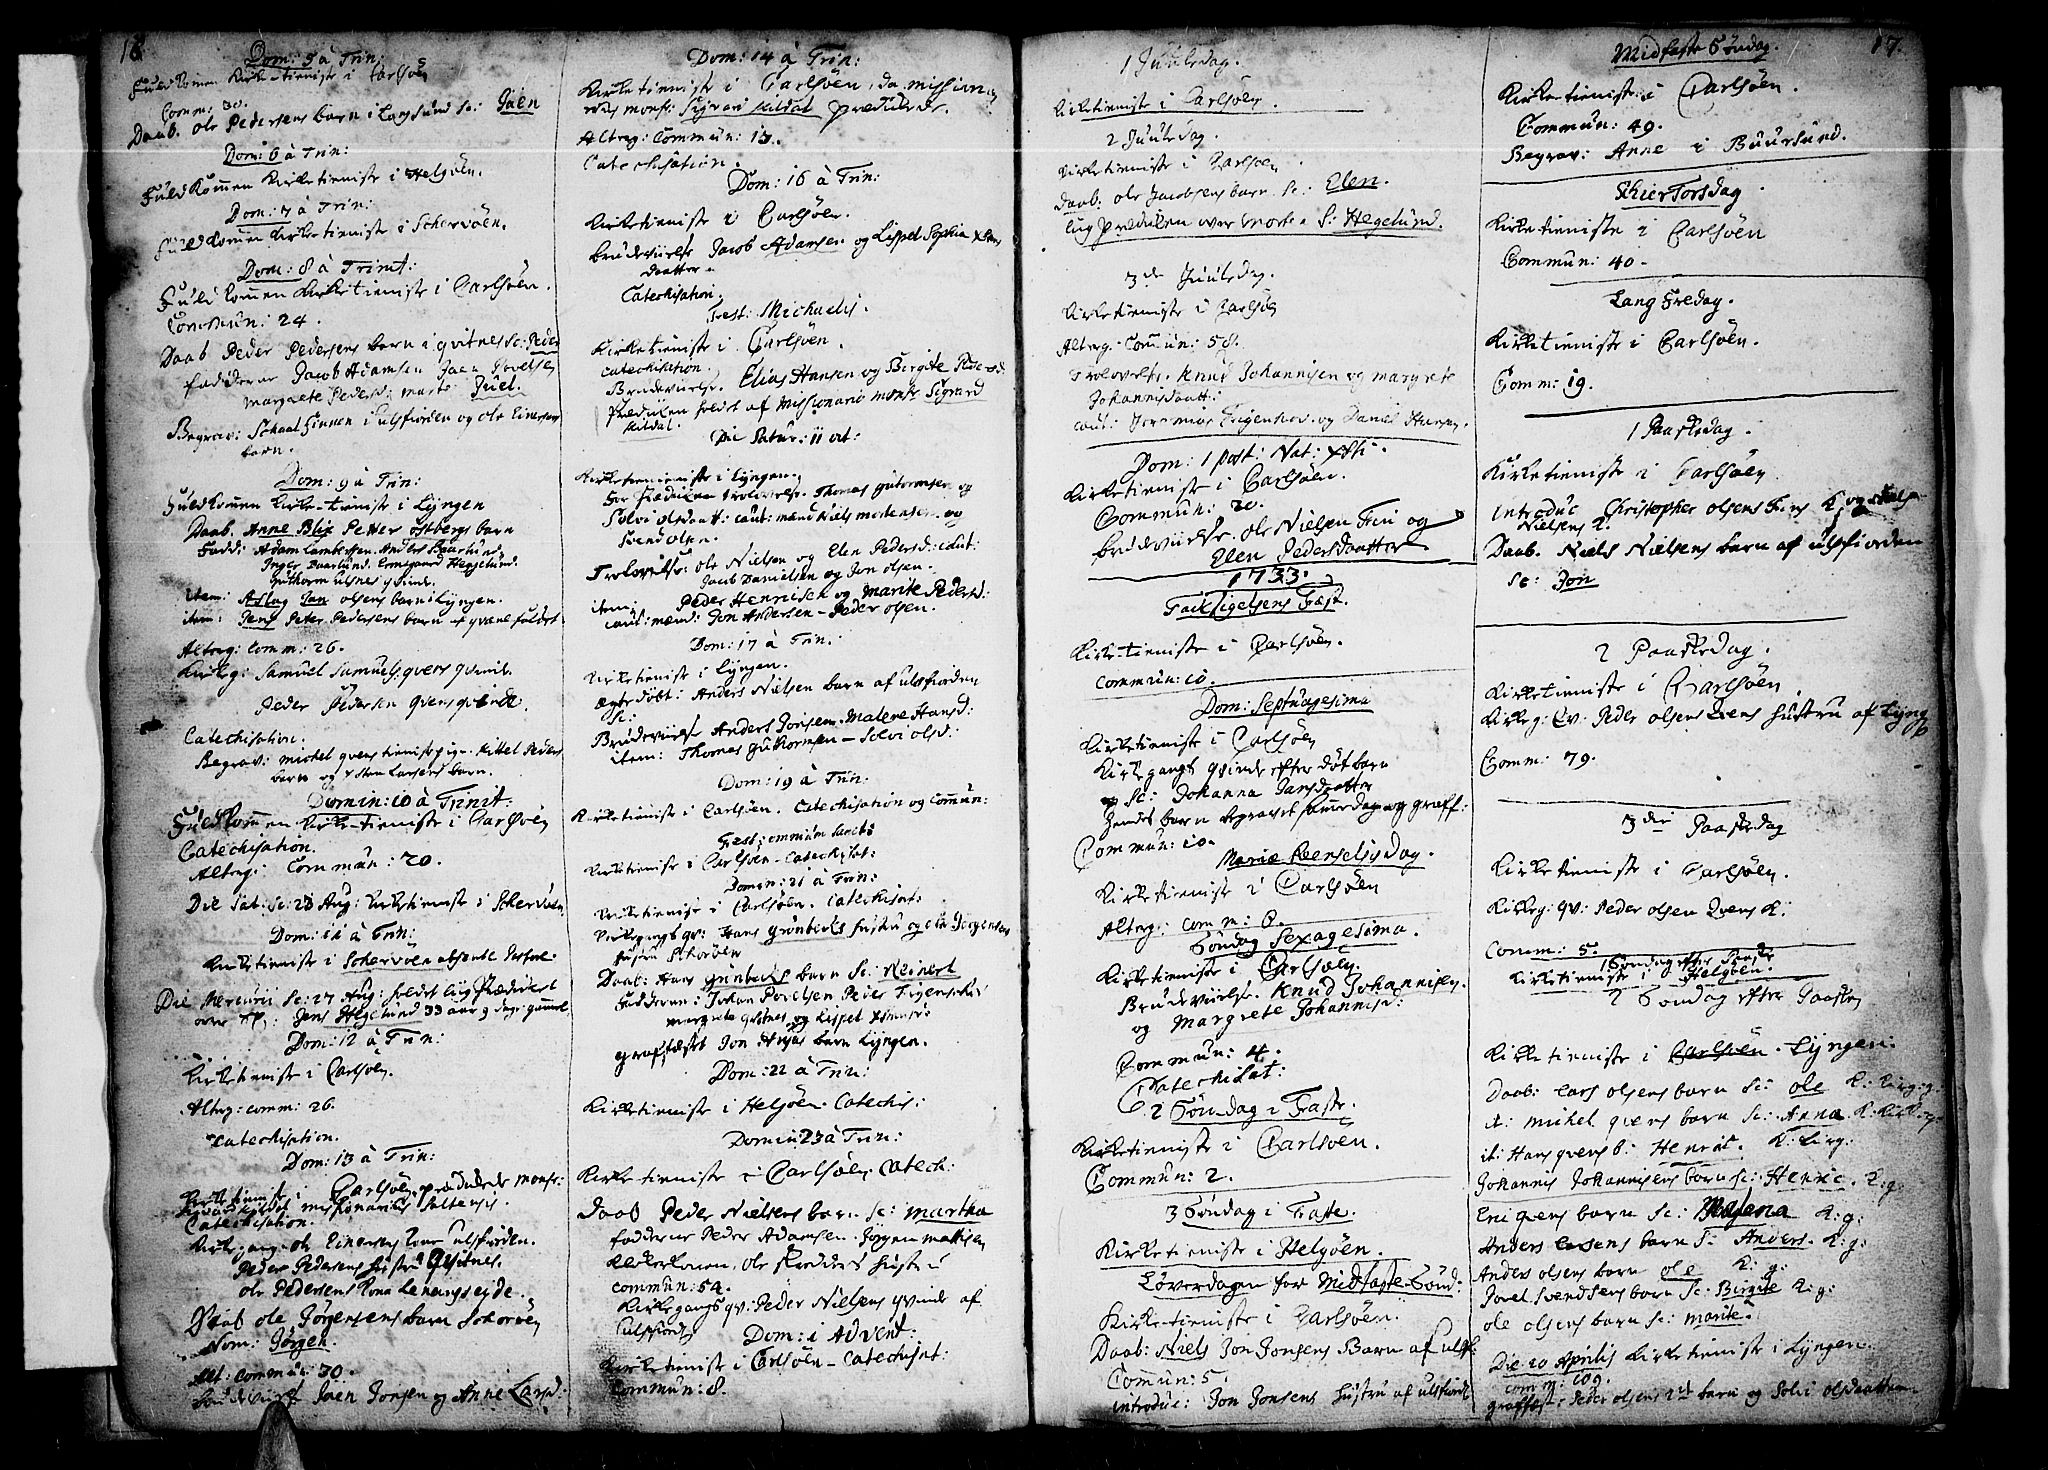 16
Dom: 5 à Trin:
Fuldkommen Kirke-tieniste i Carlsöen
Comm: 30.
Daab. Ole Pedersens barn i Langsund sc: Joen
Dom: 6 à Trin:
Fuldkommen Kirketieniste i Helgöen.
Dom: 7 à Trin:
Fuldkommen Kirketieniste i Schervöen.
Dom: 8 à Trinit:
Fuldkommen Kirketieniste i Carlsöen.
Commun: 24.
Daab Peder Pedersens barn i qvitnes sc: Peder
fadderne Jacob Adamsen Joen Povelsen
Margrete Pedersd: marte Juel.
Begrav: Schaal Finnen i ulsfiorden og ole Einersens
barn.
Dom: 9 à Trin:
Fuldkommen Kirke-tieniste i Lyngen
Daab. Anne Blix Petter östbergs barn
Fadd: Adam Lambertsen. Anders Baarlund
Inger Baarlund. Ermegaard Heggelund.
Guthorm ulsnes qvinde.
item: Aslag Jan olsens barn Lyngen.
item: Jens Peter Pedersens barn
Alterg: Comm: 26.
Kirkeg: Samuel Samuels: qvens qvinde.
Peder Pedersen qvens qvinde.
Catechisation.
Begrav: michel qvens tienistepige. Kittel Peders
barn og Larsens barn.
Domin: 10 à Trinit:
Fuldkommen Kirke-tieniste i Carlsöen
Catechisation.
Alterg: Commun: 20.
Die Sat: sc: 23 Aug: Kirketieniste i Schervöen
Dom: 11 à Trin:
Kirketieniste i Schervöen absente Pastore.
Die Mercurii sc: 27 Aug: holdet liig Prædiken
over Hr: Jens Hegelund 33 aar 9 dage gammel
Dom: 12 à Trin:
Kirketieniste i Carlsöen.
Alterg: comm: 26.
Catechisation.
Dom: 13 à Trin:
Kirketieniste i Carlsöen, prædikede Monsr:
Kildal missionarius Saltensis
Catechisation.
Kirkegang. ole Einersens Kone ulsfiorden.
Peder Pedersens hustru Qvitnes.
ole Pedersens Kona Lenangseyde.
Daab ole Jörgensens barn Schervöen
Nom: Jörgen.
Alt: commun: 30.
Brudevielse Joen Jonsen og Anne Larsd:
Dom: 14 à Trin:
Kirketieniste i Carlsöen, da mission
rius monsr: Sigvard Kildal prædikede.
Alterg: Commun: 13.
Catechisation.
Dom: 16 à Trin:
Kirketieniste i Carlsöen.
Brudevielse Jacob Adamsen og Lispet Sophia
daatter.
Catechisation.
Fest: Michaelis.
Kirketieniste i Carlsöen.
catechisation.
Brudevielse. Elias Hansen og Birgite
Prædiken holdt af Missionario monsr Sigvard
Kildal.
Die Satur: 11 oct:
Kirketienieniste i Lyngen.
For Prædiken trolovelse. Thomas Guttormsen og
Solvi olsdaatt: caut: mænd Niels mortensen. og
Svend olsen.
Trolovelse: ole Nielsen og Elen Pedersd: caut:
Jacob Danielsen og Jon olsen.
item: Peder Henrichsen og Marite Pedersd:
caut: mænd: Jon Andersen - Peder olsen.
Dom: 17 à Trin:
Kirketieniste i Lyngen.
ægte döbt: Anders Nielsen barn af ulsfiorden
sc:
Brudevielse Anders Jonsen. Malene Hansd:
item: Thomas Guttormsen - Solvi olsd:
Dom: 19 à Trin:
Kirketieniste i Carlsöen. Catechisation og Comun:
Fest: omnium Sanct:
Kirketieniste i Carlsöen - Catechisat:
Domin: 21 à Trin:
Kirketieniste i Carlsöen. Catechisat:
Kirkegangs qv: Hans Grönbecks hustru og ole Jörgensens
hustru Schervöen
Daab: Hans Grönbechs barn sc: Reinert
Fadderne: Johan Povelsen, Peder
Margrete Qvitnes og Lispet
Graffæstet Jon barn Lyngen.
Dom: 22 à Trin:
Kirketieniste i Helgöen. Catechis:
Domin: 23 à Trin:
Kirketieniste i Carlsöen. Catech:
Daab Peder Nielsens barn sc: Martha
fadderne Peder Adamsen. Jörgen mathisen
Klokerkonen, ole hustru
Commun: 54.
Kirkegangs qv: Peder Nielsens qvinde af
ulsfiord
Dom: 1 Advent:
Kirketieniste i Carlsöen - Catechisat:
Commun: 8.
1 Juuledag.
Kirketieniste i Carlsöen.
2 Juuledag.
Kirketieniste i Carlsöen.
Daab: ole Jacobsens barn sc: Elen.
Liig Prædiken over Morten S: Hegelund.
3de Juuledag.
Kirketieniste i Carlsöen
Alterg: Commun: 58.
Trolovelse. Knud Johannisen og Margrete
Johannisdaatt:
caut: Jeremias og Daniel Hansen.
Dom: 1 post: Nat: xsti.
Kirketieniste i Carlsöen.
Commun: 20.
Brudevielse. ole Nielsen og
Elen Pedersdaatter
1733.
Tacksigelsens Fæst.
Kirke-tieniste i Carlsöen.
Commun: 10.
Dom: Septuagesima
Kirketieniste i Carlsöen
Kirkegangs qvinde efter döt barn
sc: Johanna Jansdaatter
hendes barn begravet samme dag og graff:
Commun: 10.
Mariæ Renselses dag.
Kirketieniste i Carlsöen
Alterg: Comm: 8.
Söndag Sexagesima.
Kirketieniste i Carlsöen.
Brudevielse. Knud Johannisen.
og Margrete Johannisd:
Commun: 4.
Catechisat:
2 Söndag i Faste.
Kirketieniste i Carlsöen.
Commun: 2.
3 Söndag i Faste.
Kirketieniste i Helgöen.
Löverdagen for Midfaste Sönd:
Kirketieniste i Carlsöen.
Daab: Niels Jon Jonsens Barn af ulsf:
Comun: 5.
introduc: Jon Jonsens hustru af ulsfiord
17.
Midfaste Söndag.
Kirketieniste i Carlsöen.
Commun: 49.
Begrav: Anne i Buursund.
Skiertorsdag
Kirketieniste i Carlsöen
Commun: 40.
Lang Fredag.
Kirketieniste i Carlsöen.
Comm: 19.
1 Paaskedag.
Kirketieniste i Carlsöen
Introduc Christopher olsens K. og
Nielsens K.
Daab. Niels Nielsens barn af ulsfiorden
sc: Jon
2 Paaskedag.
Kirketieniste i Carlsöen.
Kirkeg: Qv. Peder olsens Qvens hustru af Lyng
Comm: 79.
3die Paaskedag
Kirketieniste i Carlsöen.
Kirkeg: qv: Peder olsen Qvens K:
Comm: 5.
1 Söndag efter Paaske
Kirketieniste i Helgöen.
2 Söndag efter Paaske
Kirketieniste i Carlsöen. Lyngen:
Daab: Lars olsens barn sc: ole K: Kirg:
it: Michel qvens barn sc: Anna K: Kirk:g:
it: Hans qvens b: Henric. K: Kirg:
Johannis Johannisens barn sc: Henric. K: g:
Eric qvens barn sc: Malena K: g:
Anders Larsens barn s: Anders. K: g:
Anders olsens barn ole K: g:
Povel Svendsens barn sc: Birgite K: g:
ole olsens barn sc: Marite
Die 20 Aprilis Kirketieniste i Lyngen.
comm: 109.
graffæst: Peder olsens 2 barn og Solvi olsdaatter